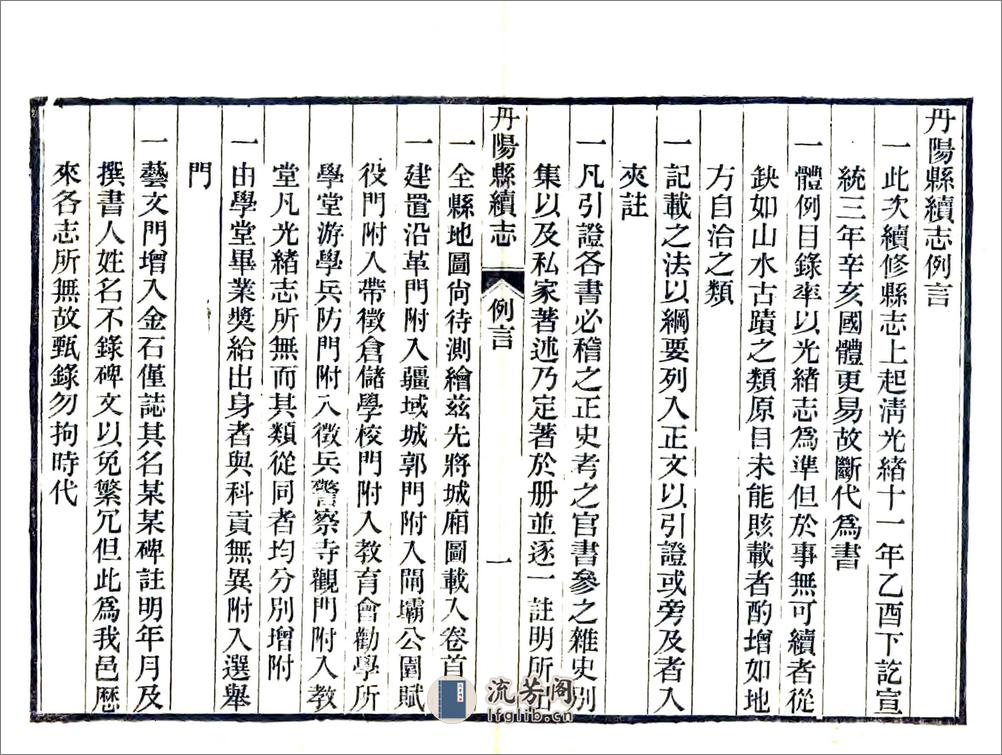 丹陽縣續志例言
一此次續修縣志上起淸光緒十一年乙酉下訖宣
統三年辛亥國體更易故斷代爲書
一體例目錄率以光緒志爲準但於事無可續者從
缺如山水古蹟之類原目未能賅載者酌增如地
方自治之類
一記載之法以綱要列入正文以引證或旁及者入
夾註
一凡引證各書必稽之正史考之官書參之雜史別
集以及私家著述乃定著於册並逐一註明所出
丹陽縣續志 例言 一
一全縣地圖尙待測繪茲先將城廂圖載入卷首
一建置沿革門附入疆域城郭門附入閘壩公園賦
役門附入帶徵倉儲學校門附入教育會勸學所
學堂游學兵防門附入徵兵警察寺觀門附入教
堂凡光緒志所無而其類從同者均分別增附
一由學堂畢業獎給出身者與科貢無異附入選舉
門
一藝文門增入金石僅誌其名某某碑註明年月及
撰書人姓名不錄碑文以免繁冗但此爲我邑歷
來各志所無故甄錄勿拘時代
流芳閣
lfglib.cn